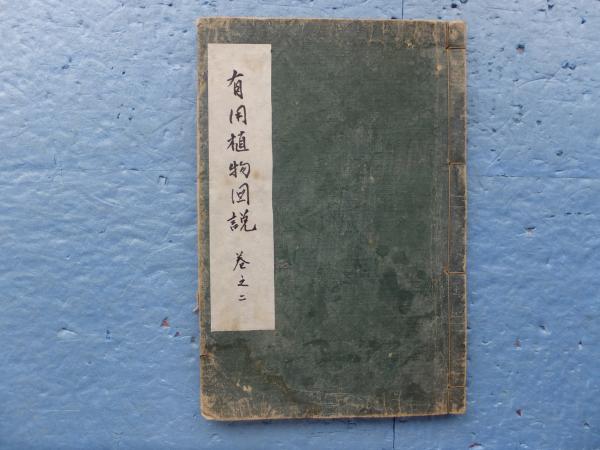 有用植物図説 巻之二